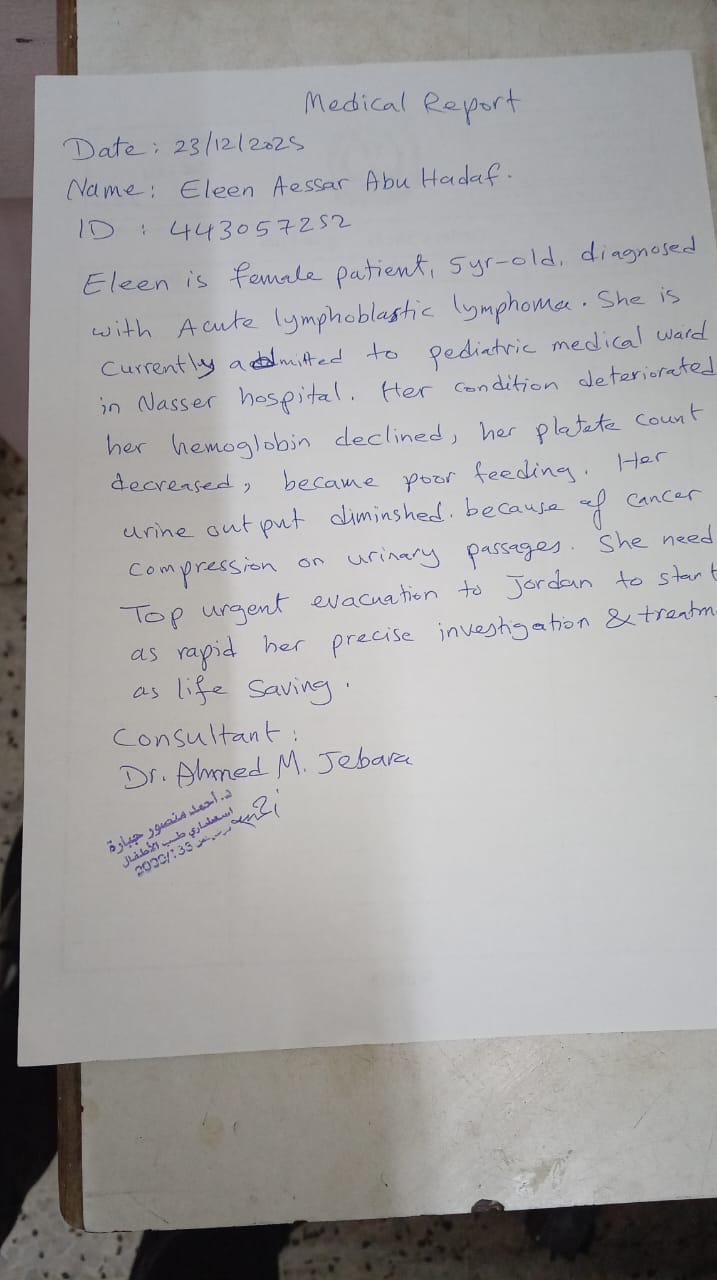 Medical Report
Date: 23/12/2025
Name: Eleen Aessar Abu Hadaf.
ID : 443057252
Eleen is female patient, 5yr-old, diagnosed
with Acute lymphoblastic lymphoma. She is
currently admitted to pediatric medical ward
in Nasser hospital. Her condition deteriorated
her hemoglobin declined, her platete count
decreased, became poor feeding. Her
urine output diminshed. because of cancer
compression on urinary passages. She need
Top urgent evacuation to Jordan to start
as rapid her precise investigation & treatm
as life saving.
Consultant:
Dr. Ahmed M. Jebara
د. أحمد منصور جبارة
استشاري طب الأطفال